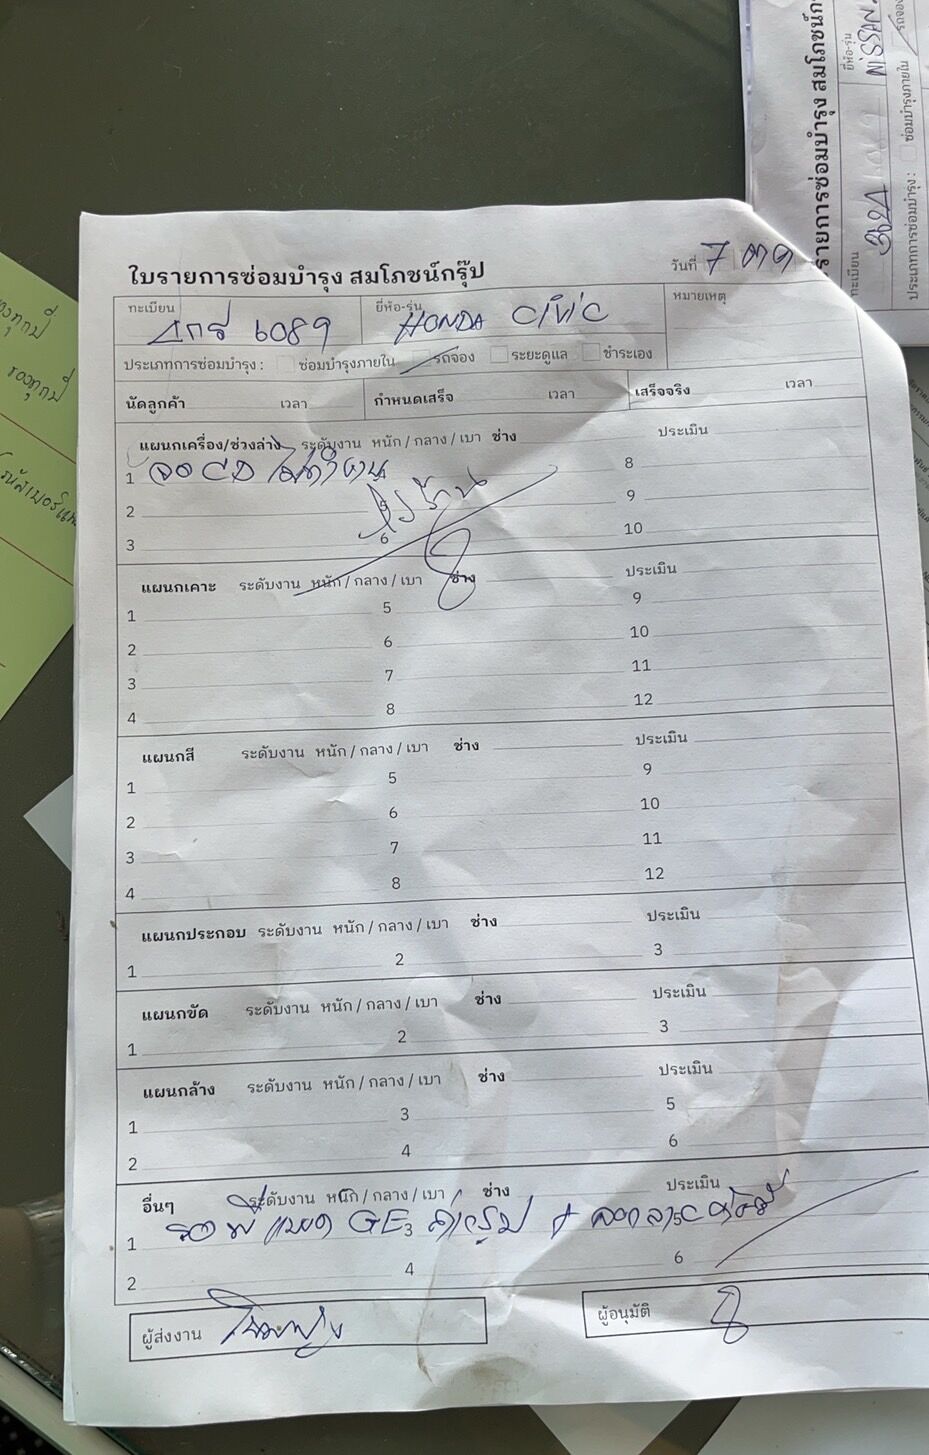 ใบรายการซ่อมบำรุง สมโภชน์กรุ๊ป
วันที่ 7
ทะเบียน 6089
ยี่ห้อ-รุ่น HONDA CIVIC
หมายเหตุ
ประเภทการซ่อมบำรุง : ซ่อมบำรุงภายใน รถจอง ระยะดูแล ชำระเอง
นัดลูกค้า เวลา กำหนดเสร็จ เวลา เสร็จจริง เวลา
แผนกเครื่อง/ช่วงล่าง ระดับงาน หนัก / กลาง / เบา ช่าง ประเมิน
1 จอ CD ไม่ทำงาน 8
2 9
3 6 10
แผนกเคาะ ระดับงาน หนัก / กลาง / เบา ช่าง ประเมิน
1 5 9
2 6 10
3 7 11
4 8 12
แผนกสี ระดับงาน หนัก / กลาง / เบา ช่าง ประเมิน
1 5 9
2 6 10
3 7 11
4 8 12
แผนกประกอบ ระดับงาน หนัก / กลาง / เบา ช่าง ประเมิน
1 2 3
แผนกขัด ระดับงาน หนัก / กลาง / เบา ช่าง ประเมิน
1 2 3
แผนกล้าง ระดับงาน หนัก / กลาง / เบา ช่าง ประเมิน
1 3 5
2 4 6
อื่นๆ ระดับงาน หนัก / กลาง / เบา ช่าง ประเมิน
1 GE3 +
2 4 6
ผู้ส่งงาน
ผู้อนุมัติ
รายการซ่อมบำรุง สมโภชน์ก
ทะเบียน
ยี่ห้อ-รุ่น NISSAN
ประเภทการซ่อมบำรุง : ซ่อมบำรุงภายใน รถจอง